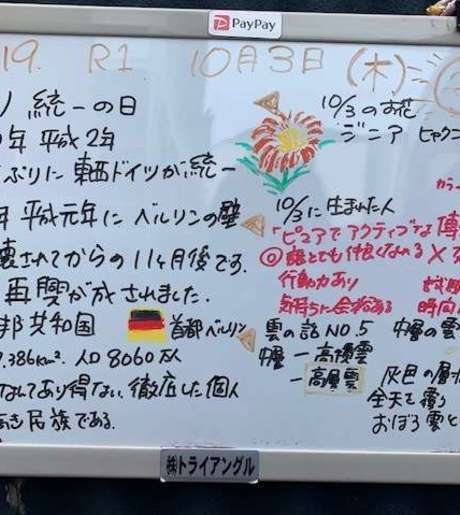 PayPay
19. R1 10月3日 (木)
統一の日
年 平成2年
ぶりに 東西ドイツが統一
年 平成元年に ベルリンの壁
壊されてからの 11ヶ月後です。
再興が成されました.
邦共和国 首都ベルリン
.386km². 人口8060万人
なんてあり得ない. 徹底した個人
民族である.
10/3のお花
ジニア ヒャクニ
カラー
10/3に生まれた人
「ピュアでアクティブな
◎誰とでも仲良くなれる ×
行動力あり
気持ちに余裕ある
時間
雲の話NO.5 中層の雲
中層 - 高積雲
- 高層雲
灰色の層
全天を覆う
おぼろ雲と
㈱トライアングル